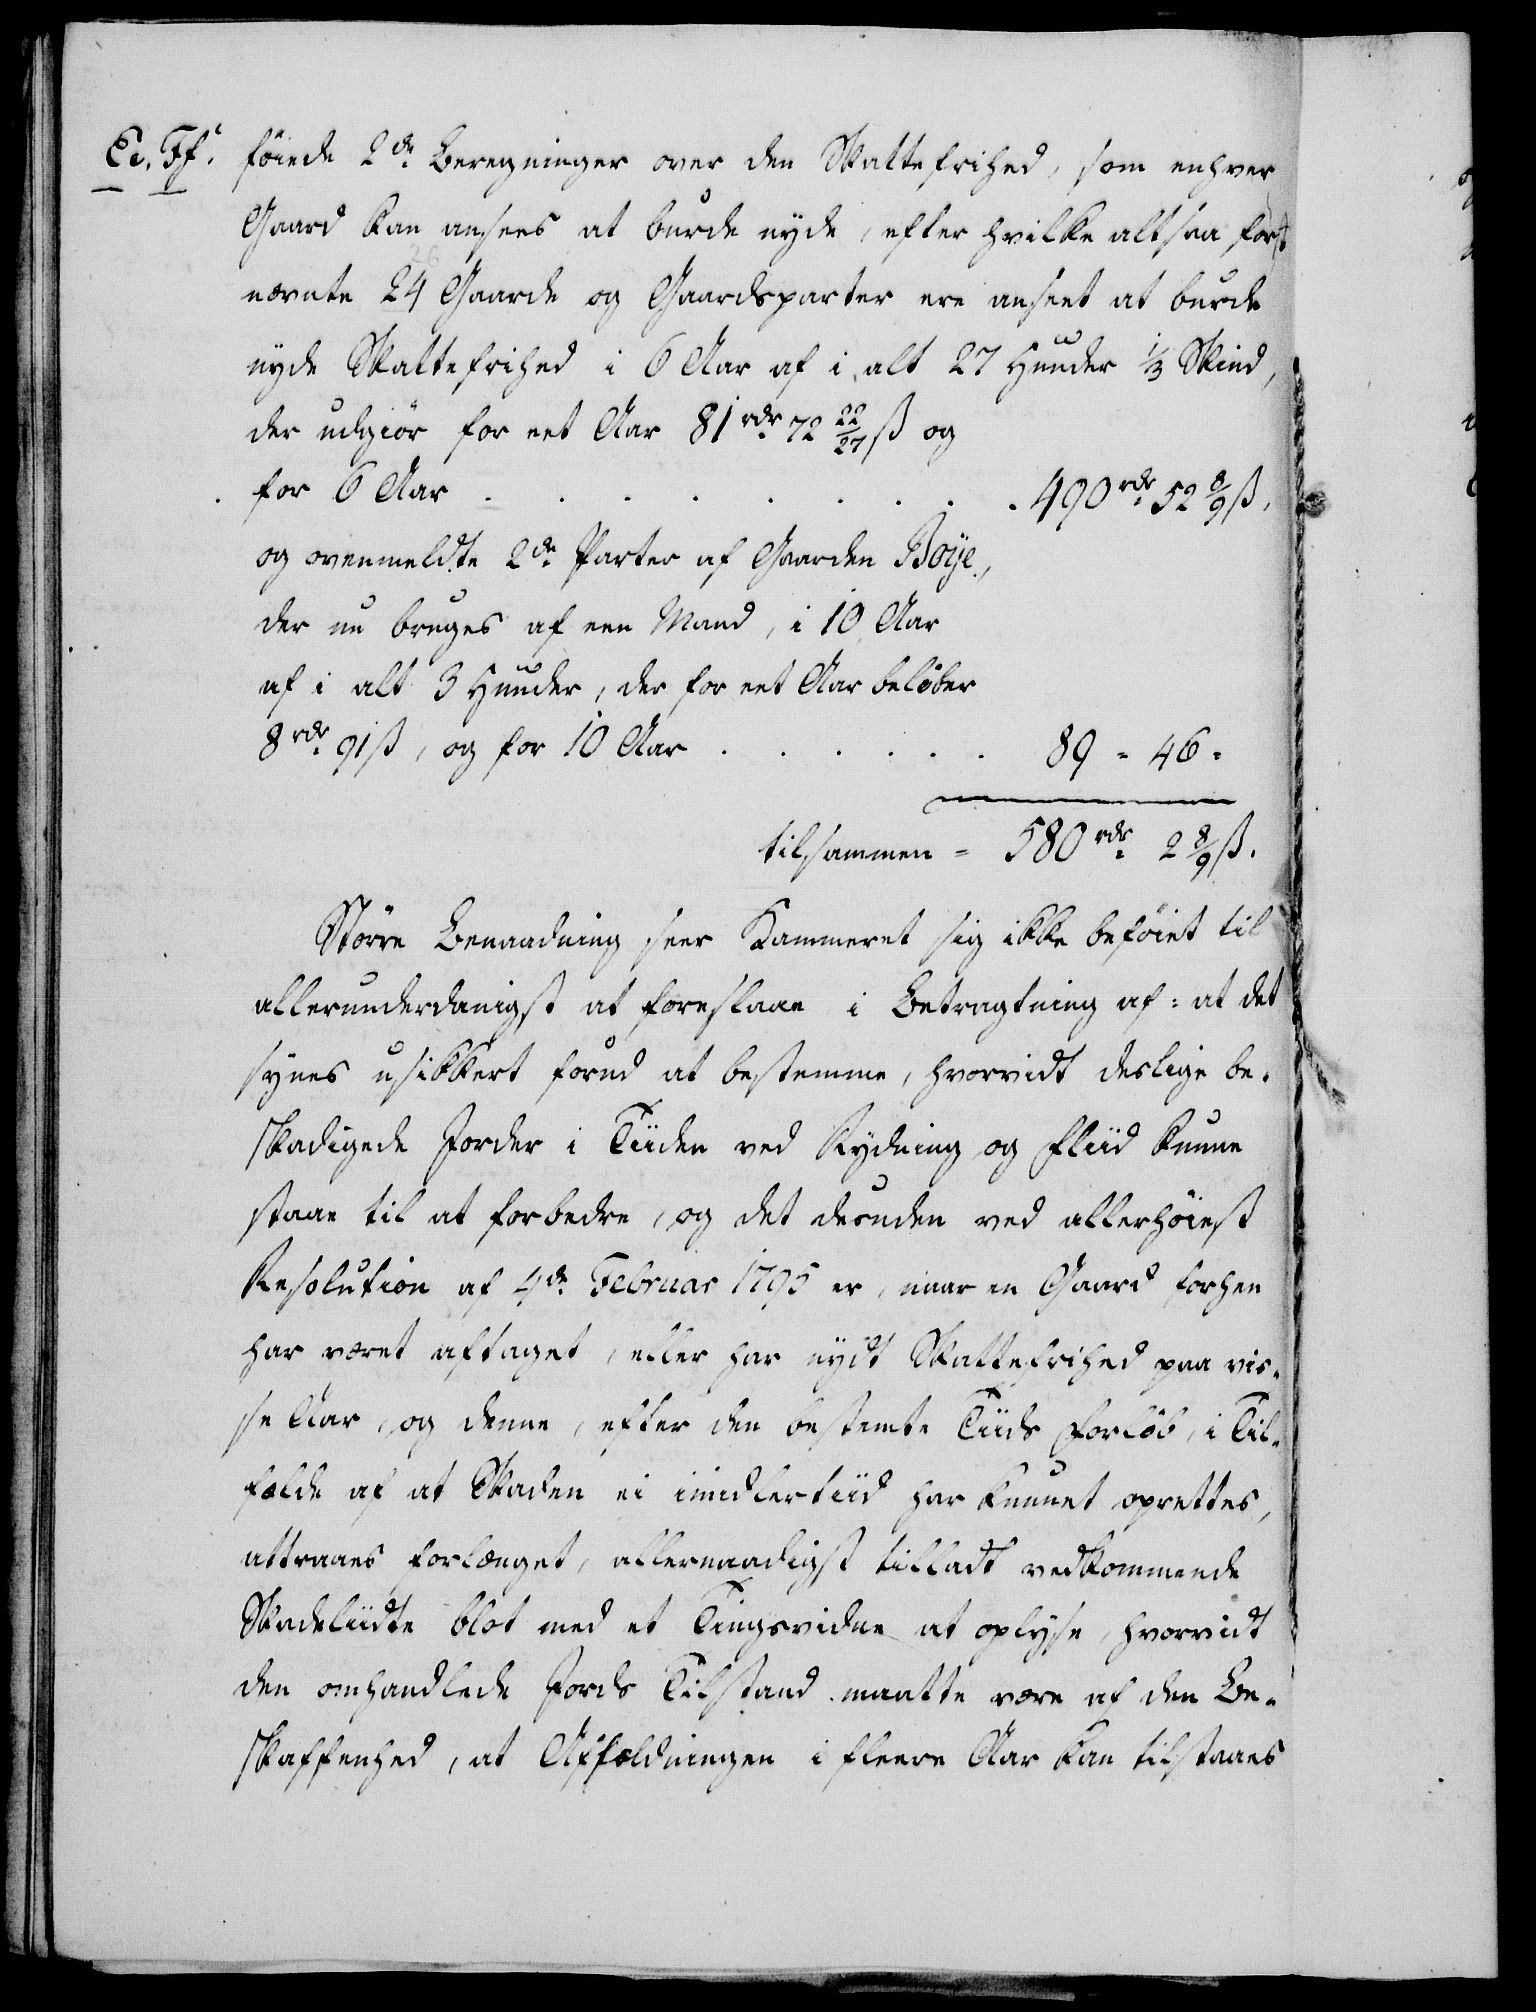 Ee. Ff. föiede 2de Beregninger over den Skattefrihed, som enhver
Gaard kan ansees at burde nyde, efter hvilke altsaa først
nævnte 24 Gaarde og Gaardsparter ere anseet at burde
nyde Skattefrihed i 6 Aar af i alt 27 Huuder 1/3 Skind,
der udgiör for eet Aar 81 rdr. 72 22/27 ß og
for 6 Aar . . . . . . . . 490 rdr. 52 8/9 ß.
og ovenmeldte 2de Parter af Gaarden Boÿe,
der nu bruges af een Mand, i 10 Aar
af i alt 3 Huuder, der for eet Aar belöber
8 rdr. 91 ß, og for 10 Aar . . . . . . 89 - 46 -
tilsammen = 580 rdr. 2 8/9 ß.
Större Benaadning seer Kammeret sig ikke beföiet til
allerunderdanigst at foreslaae i Betragtning af: at det
synes usikkert forud at bestemme, hvorvidt deslige be-
skadigede Jorder i Tiiden ved Rydning og Fliid kunne
staae til at forbedre, og det desuden ved allerhöiest
Resolution af 4de Februar 1795 er, naar en Gaard forhen
har været aftaget, eller har nydt Skattefrihed paa vis-
se Aar, og denne, efter den bestemte Tiids Forlöb, i Til-
fælde af at Skaden ei imidlertiid har kunnet oprettes,
attraaes forlænget, allernaadigst tilladt vedkommende
Skadeliidte blot med et Tingsvidne at oplyse, hvorvidt
den omhandlede Jords Tilstand maatte være af den Be-
skaffenhed, at Affældningen i fleere Aar kan tilstaaes